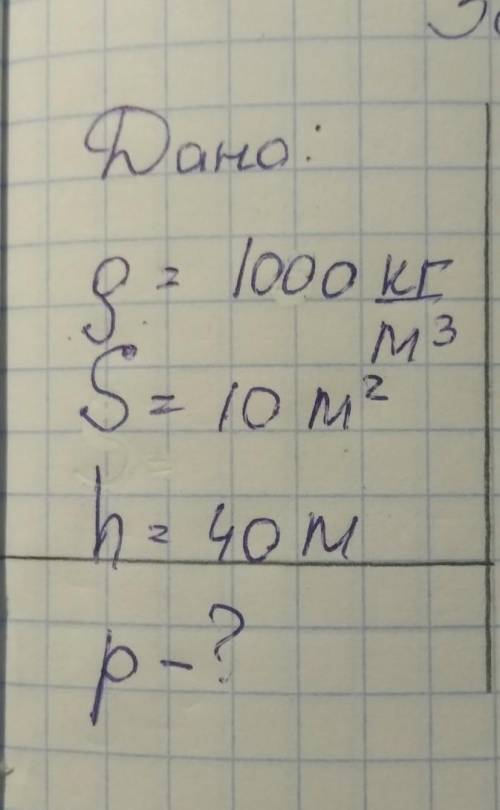 Дано:
ρ = 1000 кг/м³
S = 10 м²
h = 40 м
p - ?